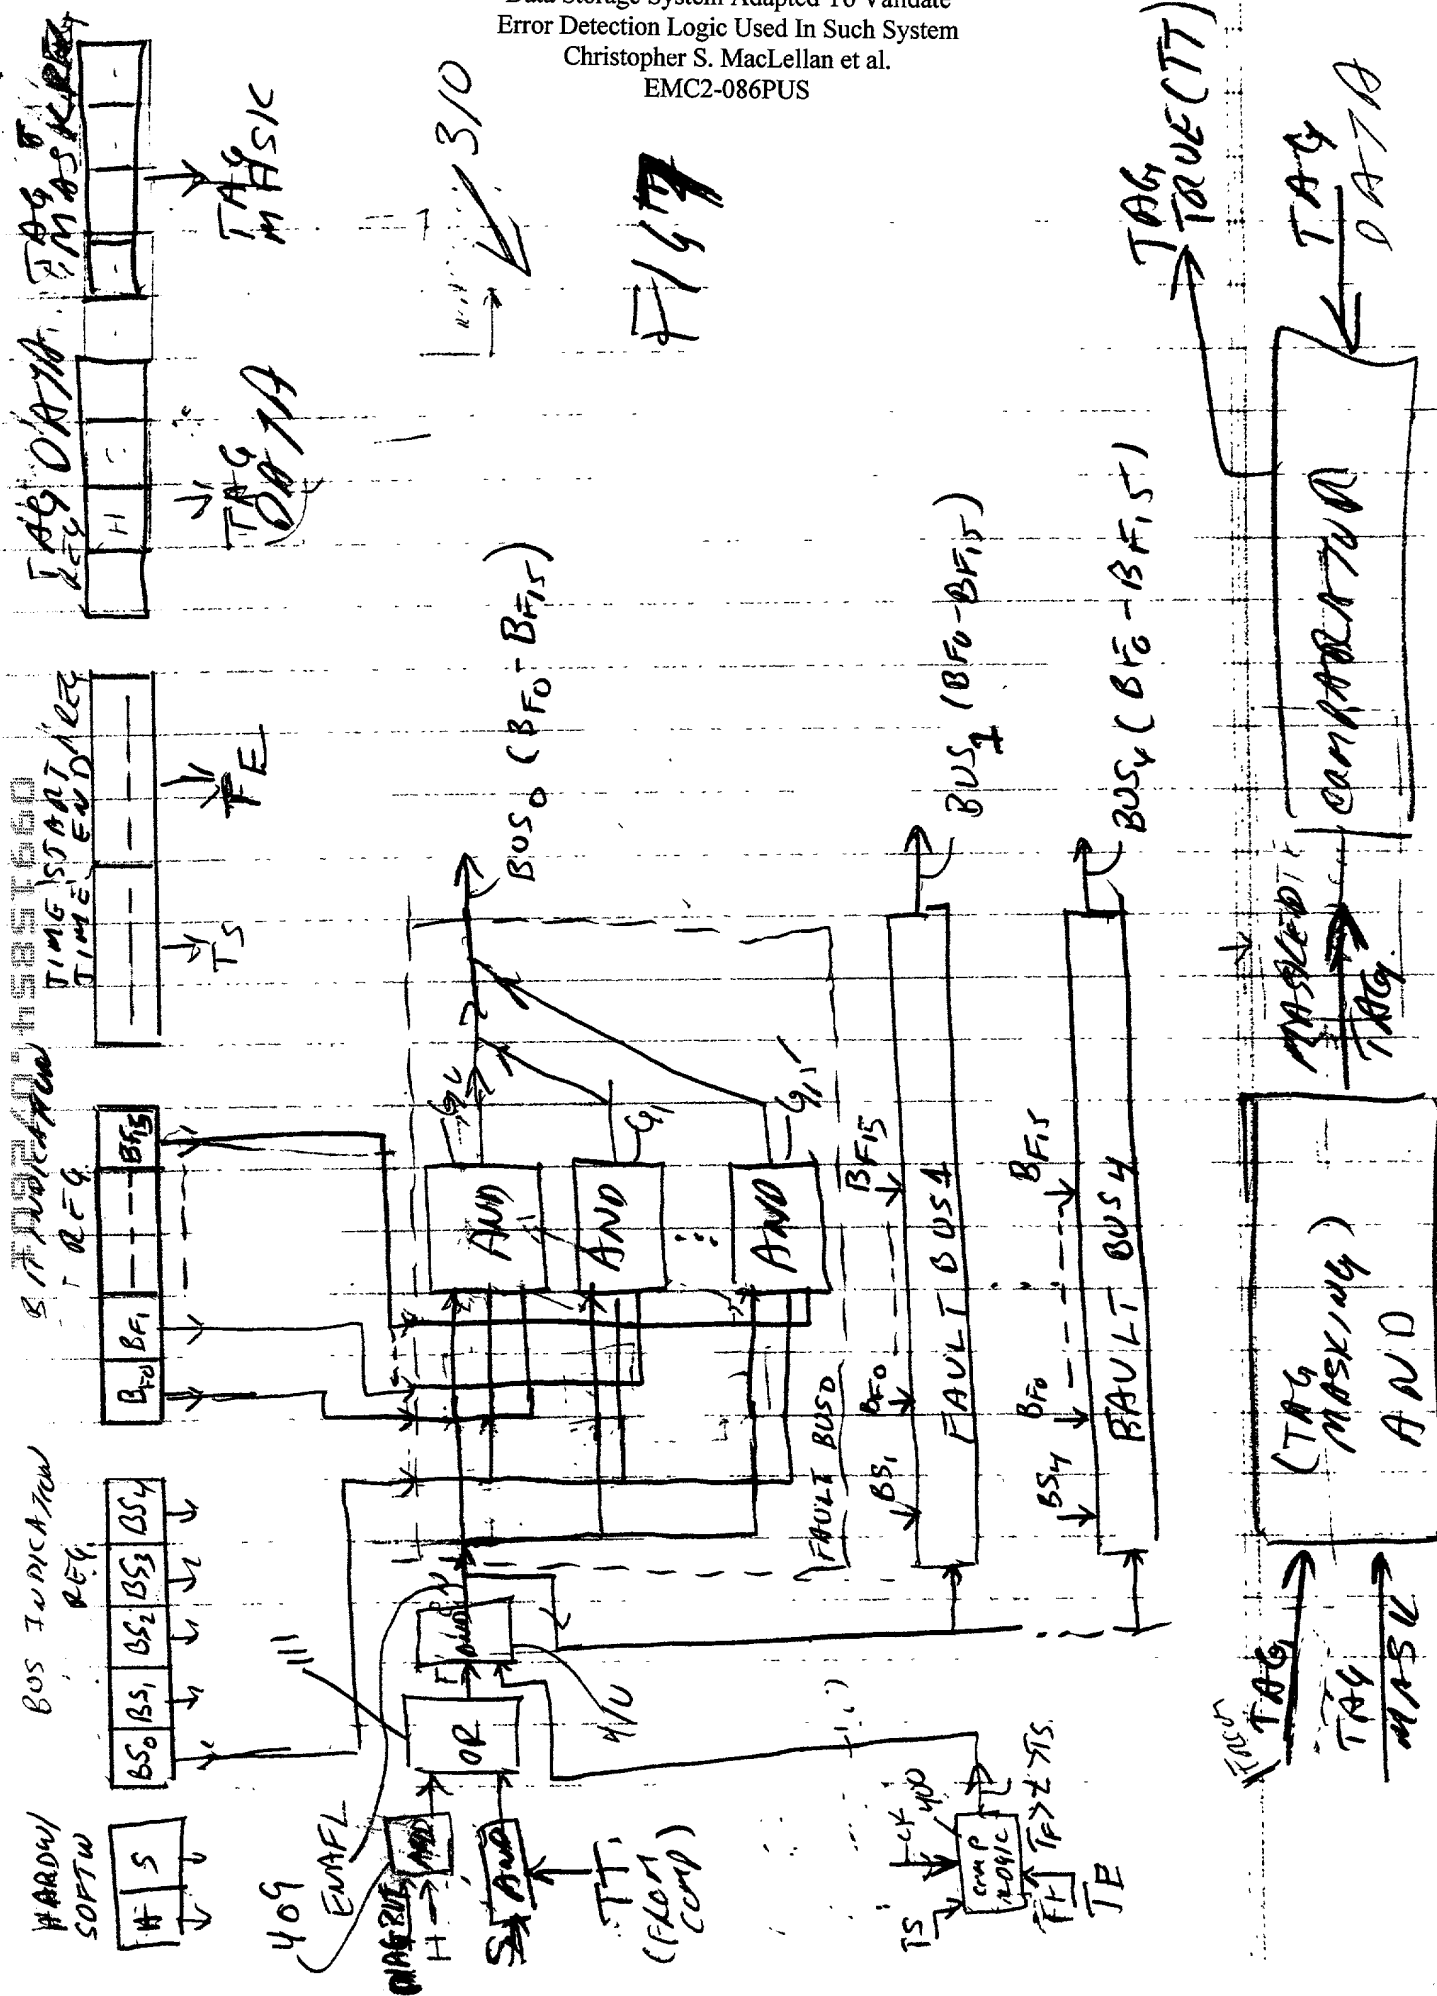 Data Storage System Adapted To Validate
Error Detection Logic Used In Such System
Christopher S. MacLellan et al.
EMC2-086PUS
HARDW/
SOFTW
H S
BUS INDICATION
REG.
BS0 BS1 BS2 BS3 BS4
INDICATION
REG.
BF0 BF1 BF15
TIME START
TIME END REG
TS
TE
TAG DATA
REG
H
TAG
DATA
TAG
MASK REG
TAG
MASK
310
FIG 7
409
ENAFL
111
DIAGBUT
H
AND
S
AND
TT
(FROM
COMP)
OR
AND
410
AND
AND
AND
G0
G1
G15
BUS0 (BF0-BF15)
FAULT BUS0
BS1 BF0 BF15
FAULT BUS1
BUS1 (BF0-BF15)
BS4 BF0 BF15
FAULT BUS4
BUS4 (BF0-BF15)
TS
CK
400
CMP
LOGIC
TE
TAG
TAG
MASK
(TAG
MASKING)
AND
MASKED
TAG
COMPARATOR
TAG
TRUE (TT)
TAG
DATA